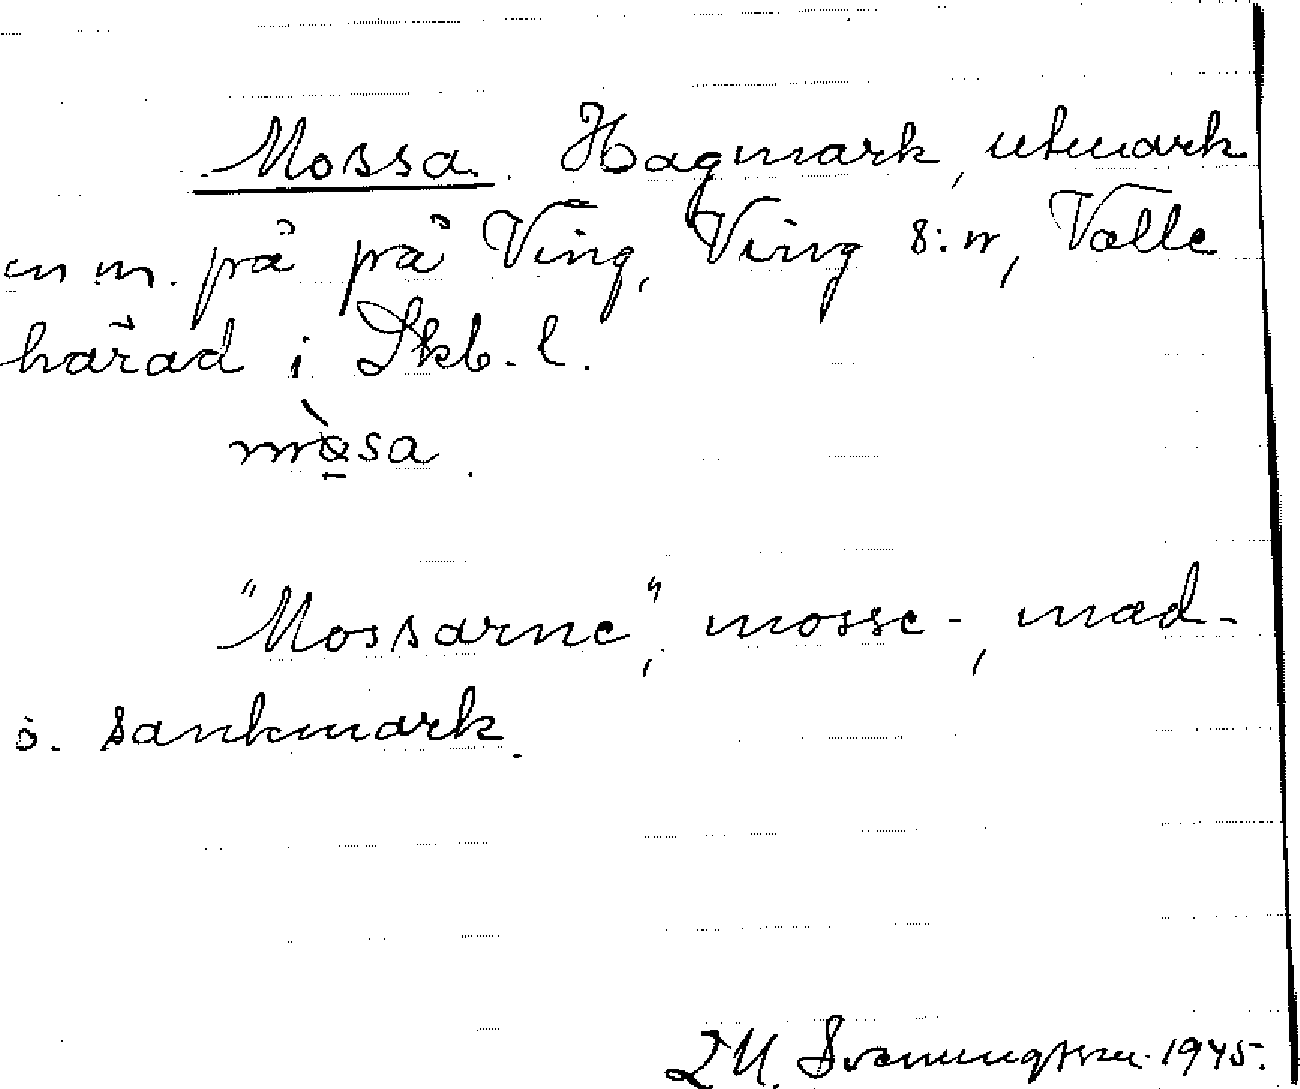 Mossa. Hagmark, utmark
m. m. på på Ving, Ving s:n, Valle
härad i Skb. l.
"Mossarne", mosse-, mad-
o. sankmark.
Svenungsson 1945.